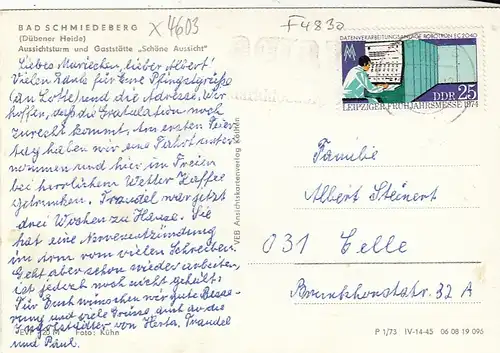 BAD SCHMIEDEBERG
(Dübener Heide)
Aussichtsturm und Gaststätte „Schöne Aussicht"
X 4603
F4830
Liebes Mariechen, lieber Albert!
Vielen Dank für Eure Pfingstgrüße
(an Lotte) und die Adresse, Wir
hoffen, daß die Gratulation noch
zurecht kommt. Am ersten Feier
tag haben wir eine Fahrt unter
nommen und hier im Freien
bei herrlichem Wetter Kaffee
getrunken. Traudel war jetzt
drei Wochen zu Hause. Sie
hat eine Nervenentzündung
im Arm vom vielen Schreiben.
Geht aber schon wieder arbeiten,
ist jedoch noch nicht geheilt.
Für Euch wünschen wir gute Besse-
rung und viele Grüsse auch an die
Ingolstädter von Herta, Traudel
und Paul.
EVP 25 M Foto: Kühn
VEB Ansichtskartenverlag Köthen
DATENVERARBEITUNGSANLAGE ROBOTRON EC 2040
MM
DDR 25
LEIPZIGER FRÜHJAHRSMESSE 1974
Familie
Albert Steinert
031 Celle
32 A
P 1/73 IV-14-45 06 08 19 096